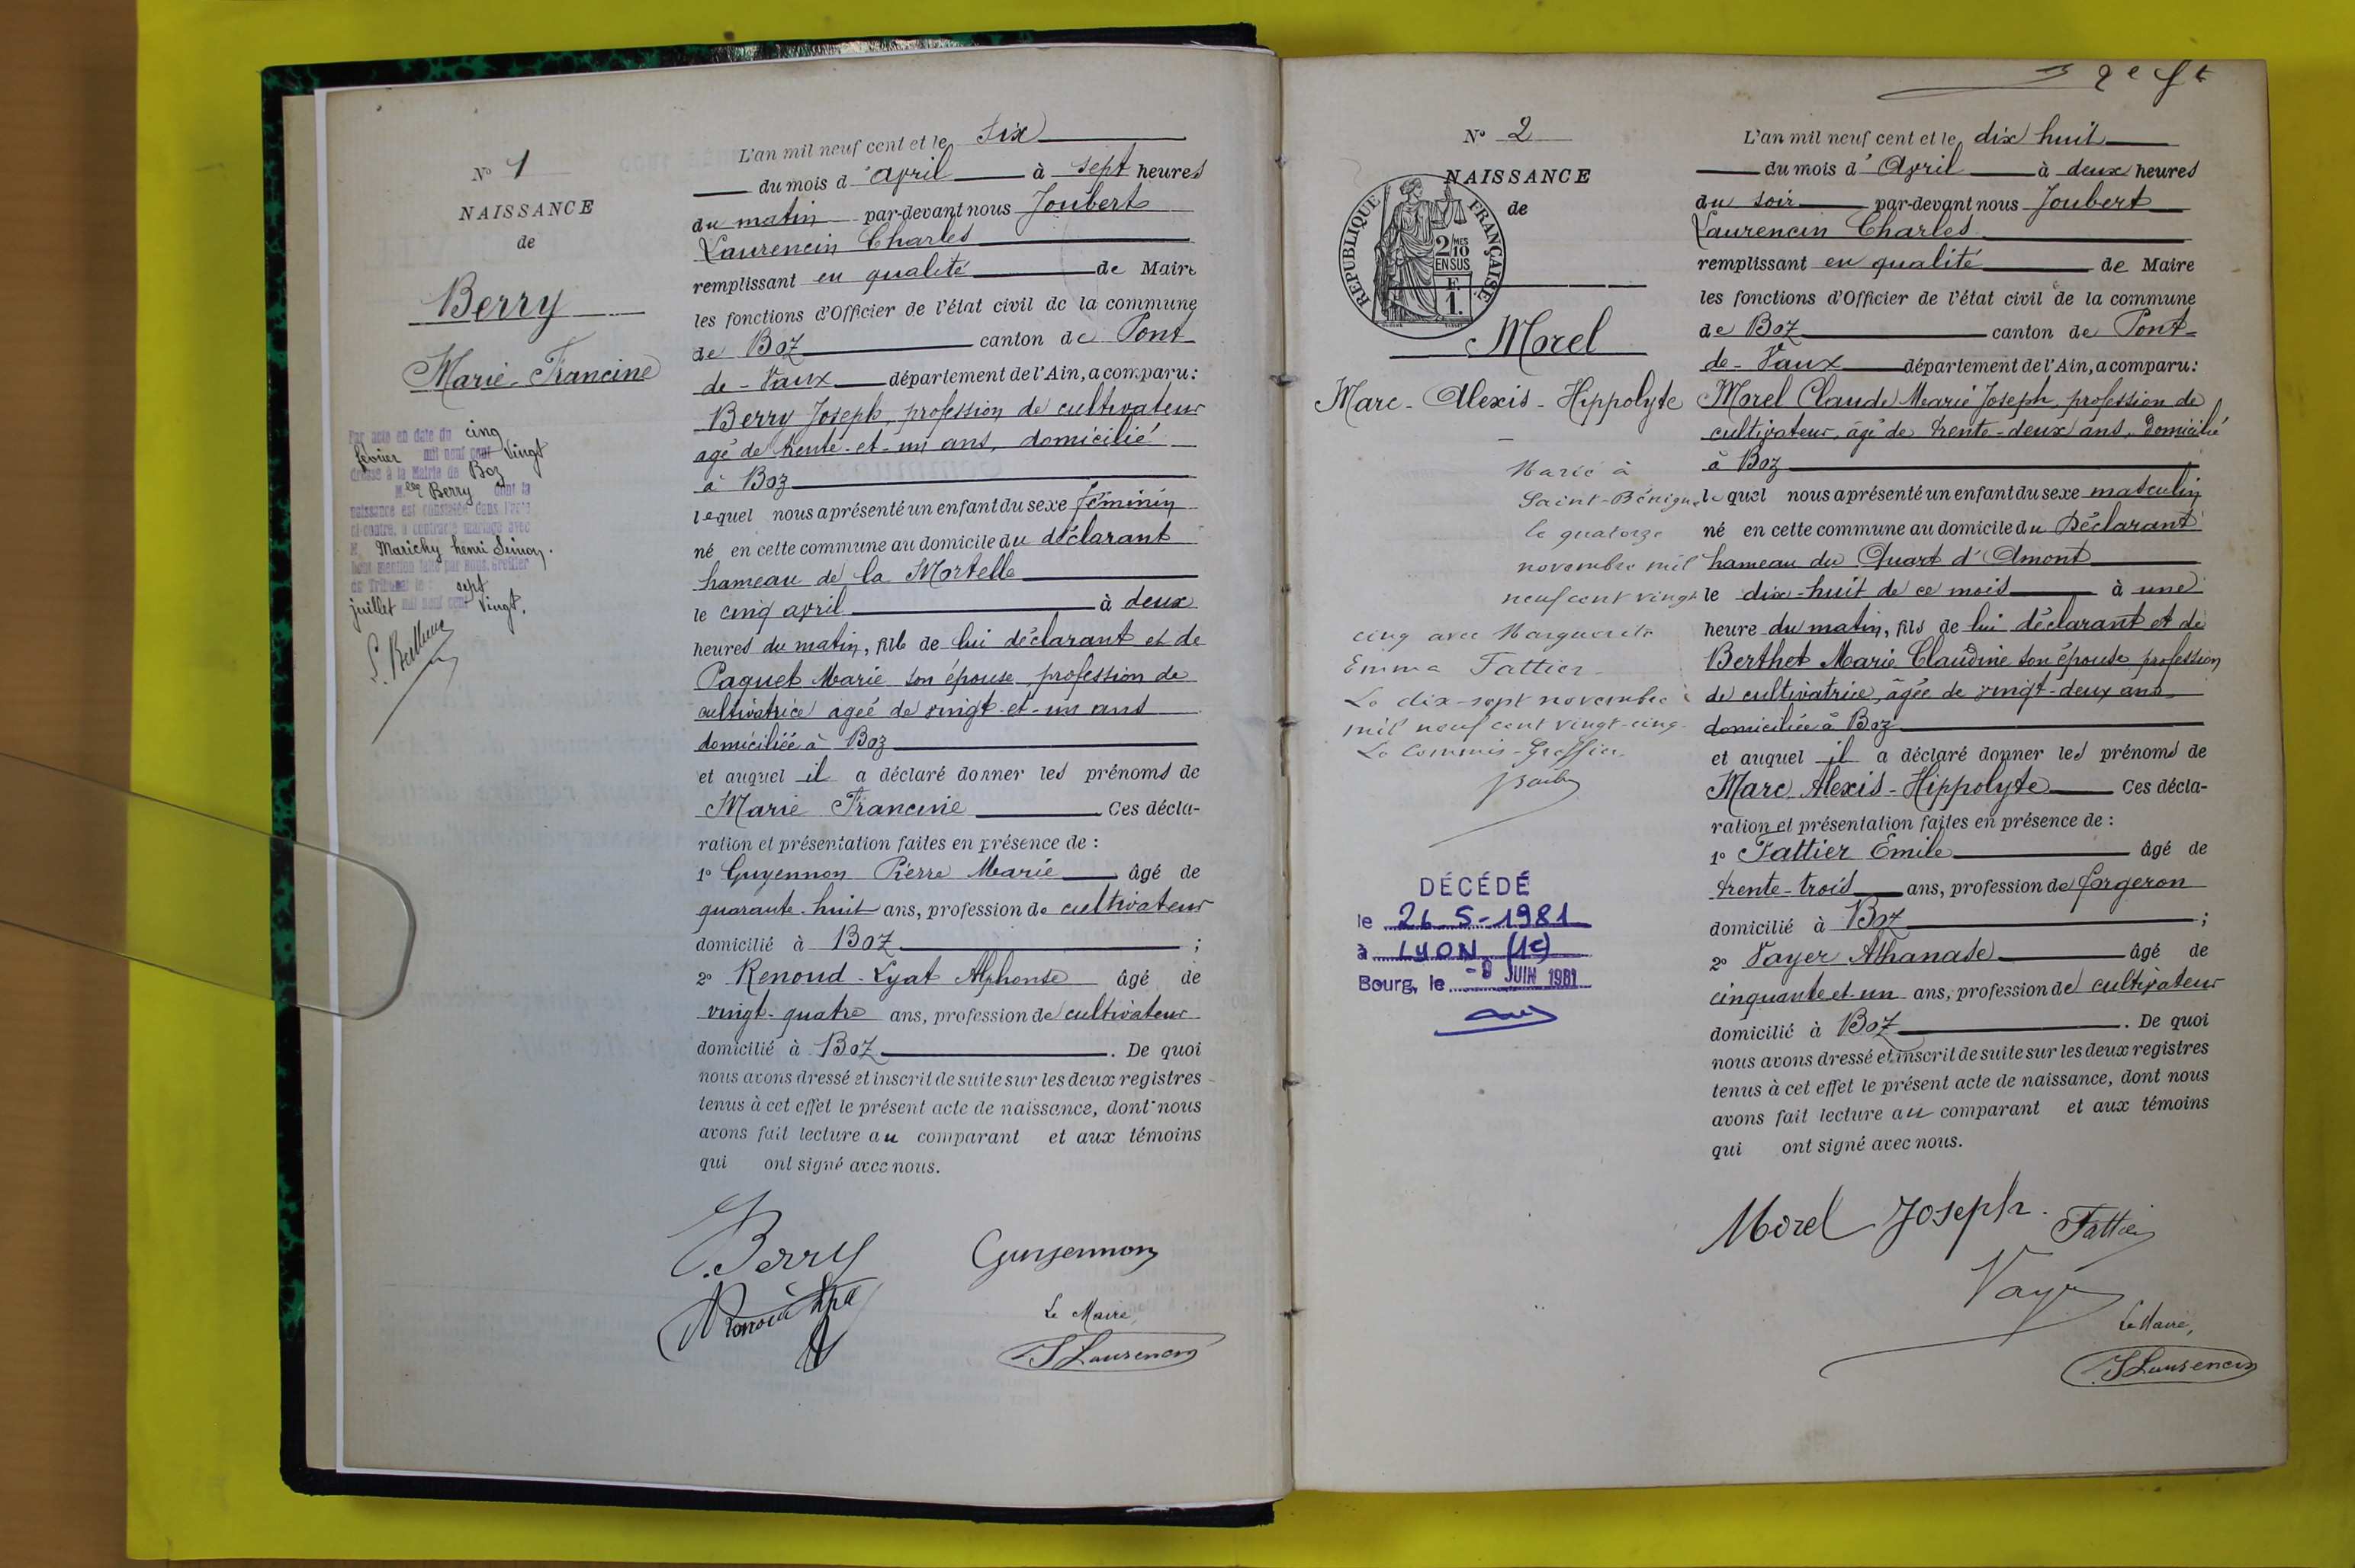 N° 1
NAISSANCE
de
Berry
Marie-Francine
Par acte en date du cinq
février mil neuf cent vingt
dressé à la Mairie de Boz
Mlle Berry dont la
naissance est constatée dans l'acte
ci-contre, a contracté mariage avec
M. Marichy henri Simon.
Dont mention faite par Nous, Greffier
du Tribunal le sept
juillet mil neuf cent vingt.
L'an mil neuf cent et le six
du mois d'avril à sept heures
du matin par-devant nous Joubert
Laurencin Charles
remplissant en qualité de Maire
les fonctions d'Officier de l'état civil de la commune
de Boz canton de Pont
de-Vaux département de l'Ain, a comparu:
Berry Joseph, profession de cultivateur
agé de trente-et-un ans, domicilié
à Boz
lequel nous a présenté un enfant du sexe féminin
né en cette commune au domicile du déclarant
hameau de la Mortelle
le cinq avril à deux
heures du matin, fils de lui déclarant et de
Paquet Marie son épouse profession de
cultivatrice agée de vingt-et-un ans
domiciliée à Boz
et auquel il a déclaré donner les prénoms de
Marie Francine Ces décla-
ration et présentation faites en présence de :
1° Guyennon Pierre Marie âgé de
quarante-huit ans, profession de cultivateur
domicilié à Boz ;
2° Renoud-Lyat Alphonse âgé de
vingt-quatre ans, profession de cultivateur
domicilié à Boz . De quoi
nous avons dressé et inscrit de suite sur les deux registres
tenus à cet effet le présent acte de naissance, dont nous
avons fait lecture au comparant et aux témoins
qui ont signé avec nous.
Berry Guyennon
Le Maire,
J Laurencin
2e ft
N° 2
NAISSANCE
de
REPUBLIQUE FRANÇAISE
2/10 MES
EN SUS
F.
1.
Morel
Marc-Alexis-Hippolyte
Marié à
Saint-Bénigne
le quatorze
novembre mil
neuf cent vingt
cinq avec Marguerite
Emma Tattier
Le dix-sept novembre
mil neuf cent vingt-cinq
Le Commis-Greffier
DÉCÉDÉ
le 26-5-1981
à LYON (1e)
Bourg, le -9 JUIN 1981
L'an mil neuf cent et le dix huit
du mois d'Avril à deux heures
du soir par-devant nous Joubert
Laurencin Charles
remplissant en qualité de Maire
les fonctions d'Officier de l'état civil de la commune
de Boz canton de Pont-
de-Vaux département de l'Ain, a comparu:
Morel Claude Marie Joseph, profession de
cultivateur, âgé de trente-deux ans, domicilié
à Boz
lequel nous a présenté un enfant du sexe masculin
né en cette commune au domicile du Déclarant
hameau du Quart d'Amont
le dix-huit de ce mois à une
heure du matin, fils de lui déclarant et de
Berthet Marie Claudine son épouse profession
de cultivatrice, âgée de vingt-deux ans
domiciliée à Boz
et auquel il a déclaré donner les prénoms de
Marc Alexis-Hippolyte Ces décla-
ration et présentation faites en présence de :
1° Tattier Emile âgé de
trente-trois ans, profession de forgeron
domicilié à Boz ;
2° Vayer Athanase âgé de
cinquante et un ans, profession de cultivateur
domicilié à Boz . De quoi
nous avons dressé et inscrit de suite sur les deux registres
tenus à cet effet le présent acte de naissance, dont nous
avons fait lecture au comparant et aux témoins
qui ont signé avec nous.
Morel Joseph. Tattier
Le Maire,
J Laurencin